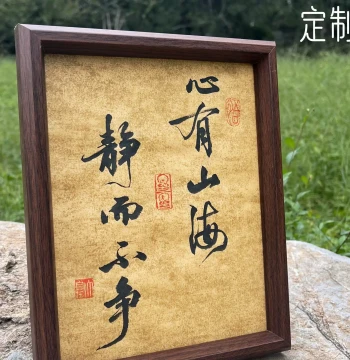 心有山海
静而不争
定制